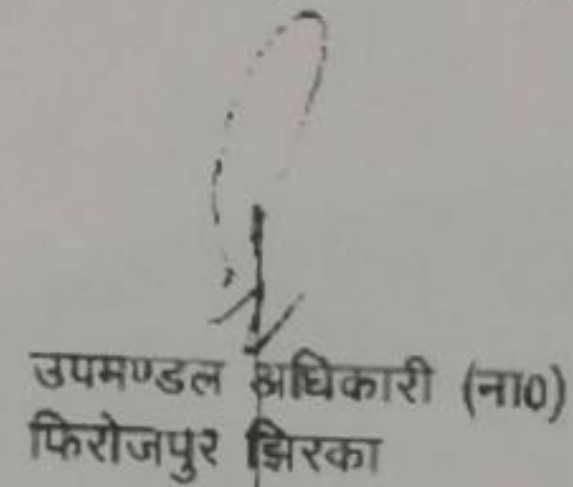 उपमण्डल अधिकारी (ना0)
फिरोजपुर झिरका